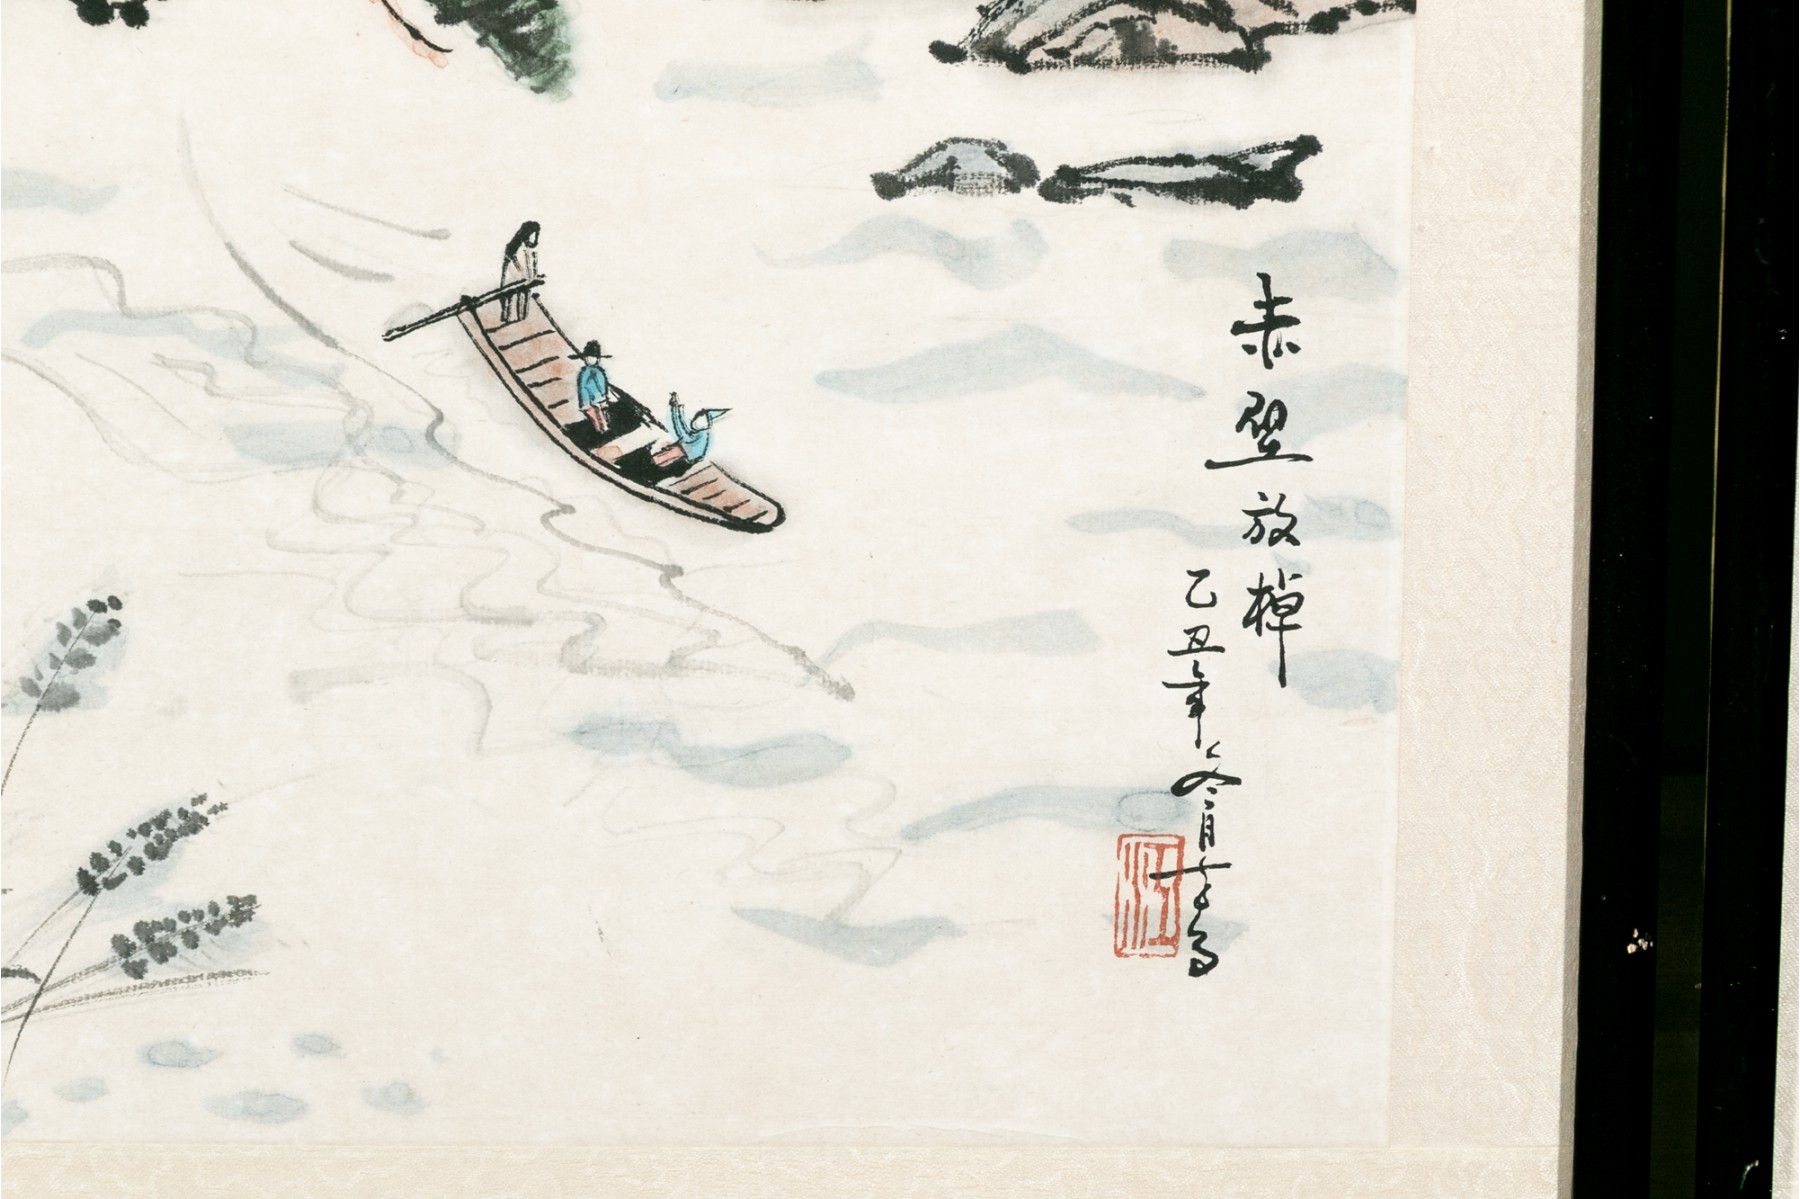 赤壁放棹
乙丑年冬月